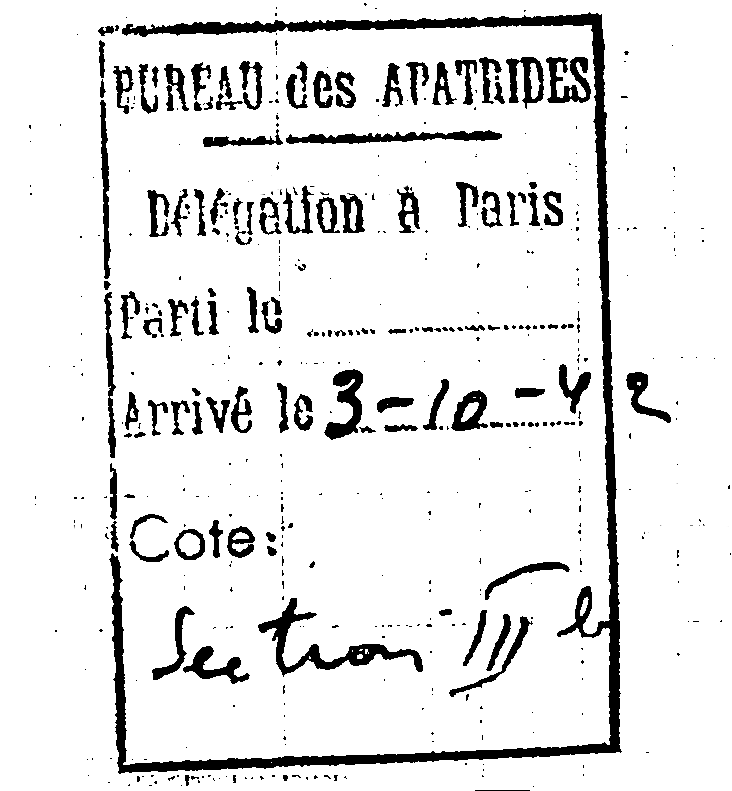 BUREAU des APATRIDES
Délégation à Paris
Parti le
Arrivé le 3-10-42
Cote:
Section III b